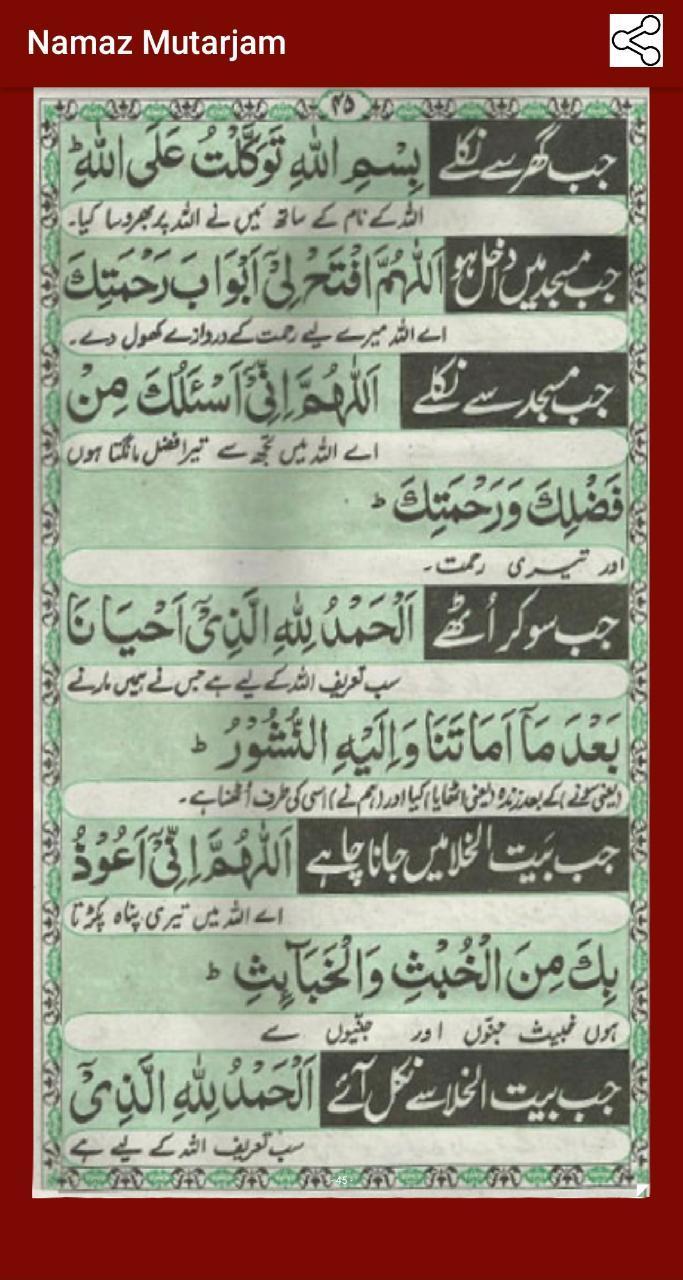 Namaz Mutarjam
۴۵
جب گھر سے نکلے بِسْمِ اللّٰهِ تَوَكَّلْتُ عَلَى اللّٰهِ ؕ
اللہ کے نام کے ساتھ میں نے اللہ پر بھروسا کیا۔
جب مسجد میں داخل ہو اَللّٰهُمَّ افْتَحْ لِیْٓ اَبْوَابَ رَحْمَتِكَ
اے اللہ میرے لیے رحمت کے دروازے کھول دے۔
جب مسجد سے نکلے اَللّٰهُمَّ اِنِّیْٓ اَسْئَلُكَ مِنْ
اے اللہ میں تجھ سے تیرا فضل مانگتا ہوں
فَضْلِكَ وَرَحْمَتِكَ ؕ
اور تیری رحمت۔
جب سو کر اُٹھے اَلْحَمْدُ لِلّٰهِ الَّذِیْٓ اَحْيَانَا
سب تعریف اللہ کے لیے ہے جس نے ہمیں مارنے
بَعْدَ مَآ اَمَاتَنَا وَاِلَيْهِ النُّشُوْرُ ؕ
(یعنی سونے) کے بعد زندہ (یعنی اٹھایا) کیا اور (ہم نے) اسی کی طرف اُٹھنا ہے۔
جب بَیت الخلا میں جانا چاہے اَللّٰهُمَّ اِنِّیْٓ اَعُوْذُ
اے اللہ میں تیری پناہ پکڑتا
بِكَ مِنَ الْخُبْثِ وَالْخَبَآئِثِ ؕ
ہوں خبیث جنّوں اور جنّیوں سے
جب بیت الخلا سے نکل آئے اَلْحَمْدُ لِلّٰهِ الَّذِیْٓ
سب تعریف اللہ کے لیے ہے
-45-